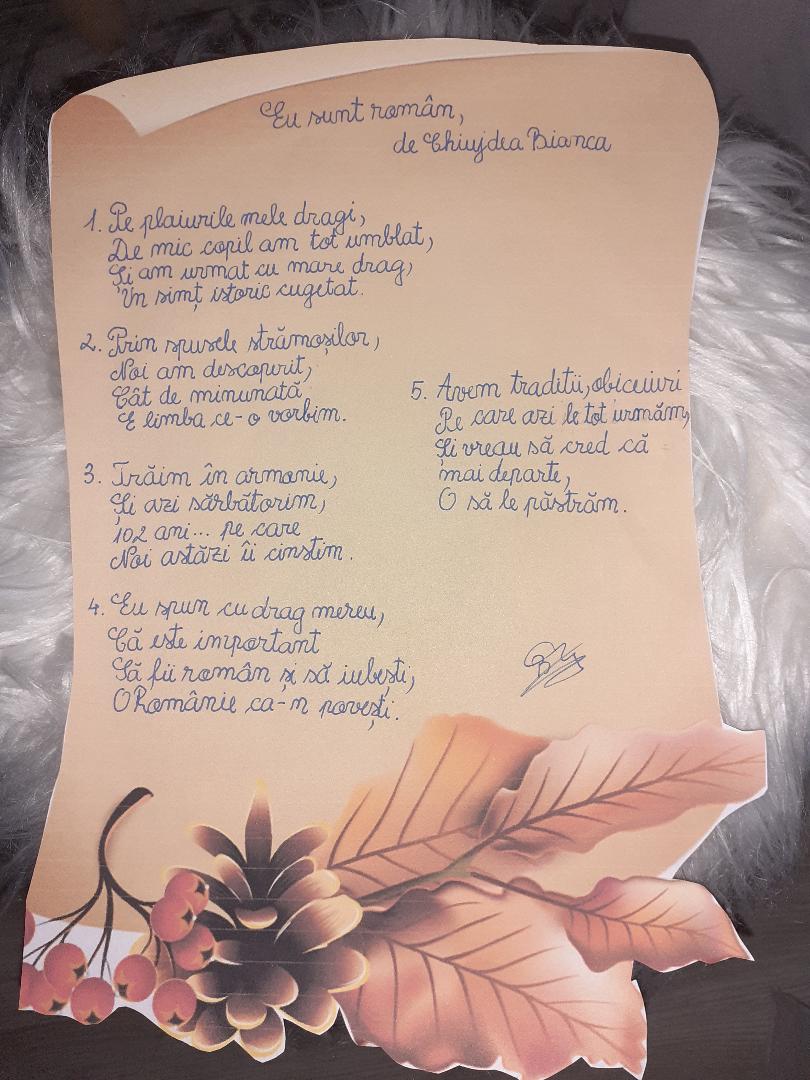 Eu sunt român,
de Chiujdea Bianca
1. Pe plaiurile mele dragi,
De mic copil am tot umblat,
Și am urmat cu mare drag,
Un simț istoric cugetat.
2. Prin spusele strămoșilor,
Noi am descoperit,
Cât de minunată
E limba ce-o vorbim.
3. Trăim în armonie,
Și azi sărbătorim,
102 ani... pe care
Noi astăzi îi cinstim.
4. Eu spun cu drag mereu,
Că este important
Să fii român și să iubești,
O Românie ca-n povești.
5. Avem traditii, obiceiuri
Pe care azi le tot urmăm,
Și vreau să cred că
mai departe,
O să le păstrăm.